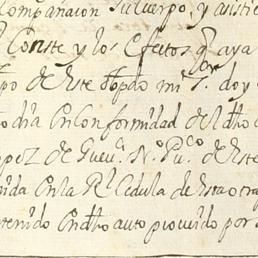 compañacion su cuerpo, y asistie
Conste y los efectos q aya
po de este Obpdo mi Sr. doy
dia en Conformidad del dho
pez de Guevª. Nº. Puco de este
nida en la Rl Cedula de esta otra
tenido en dho auto proveido por